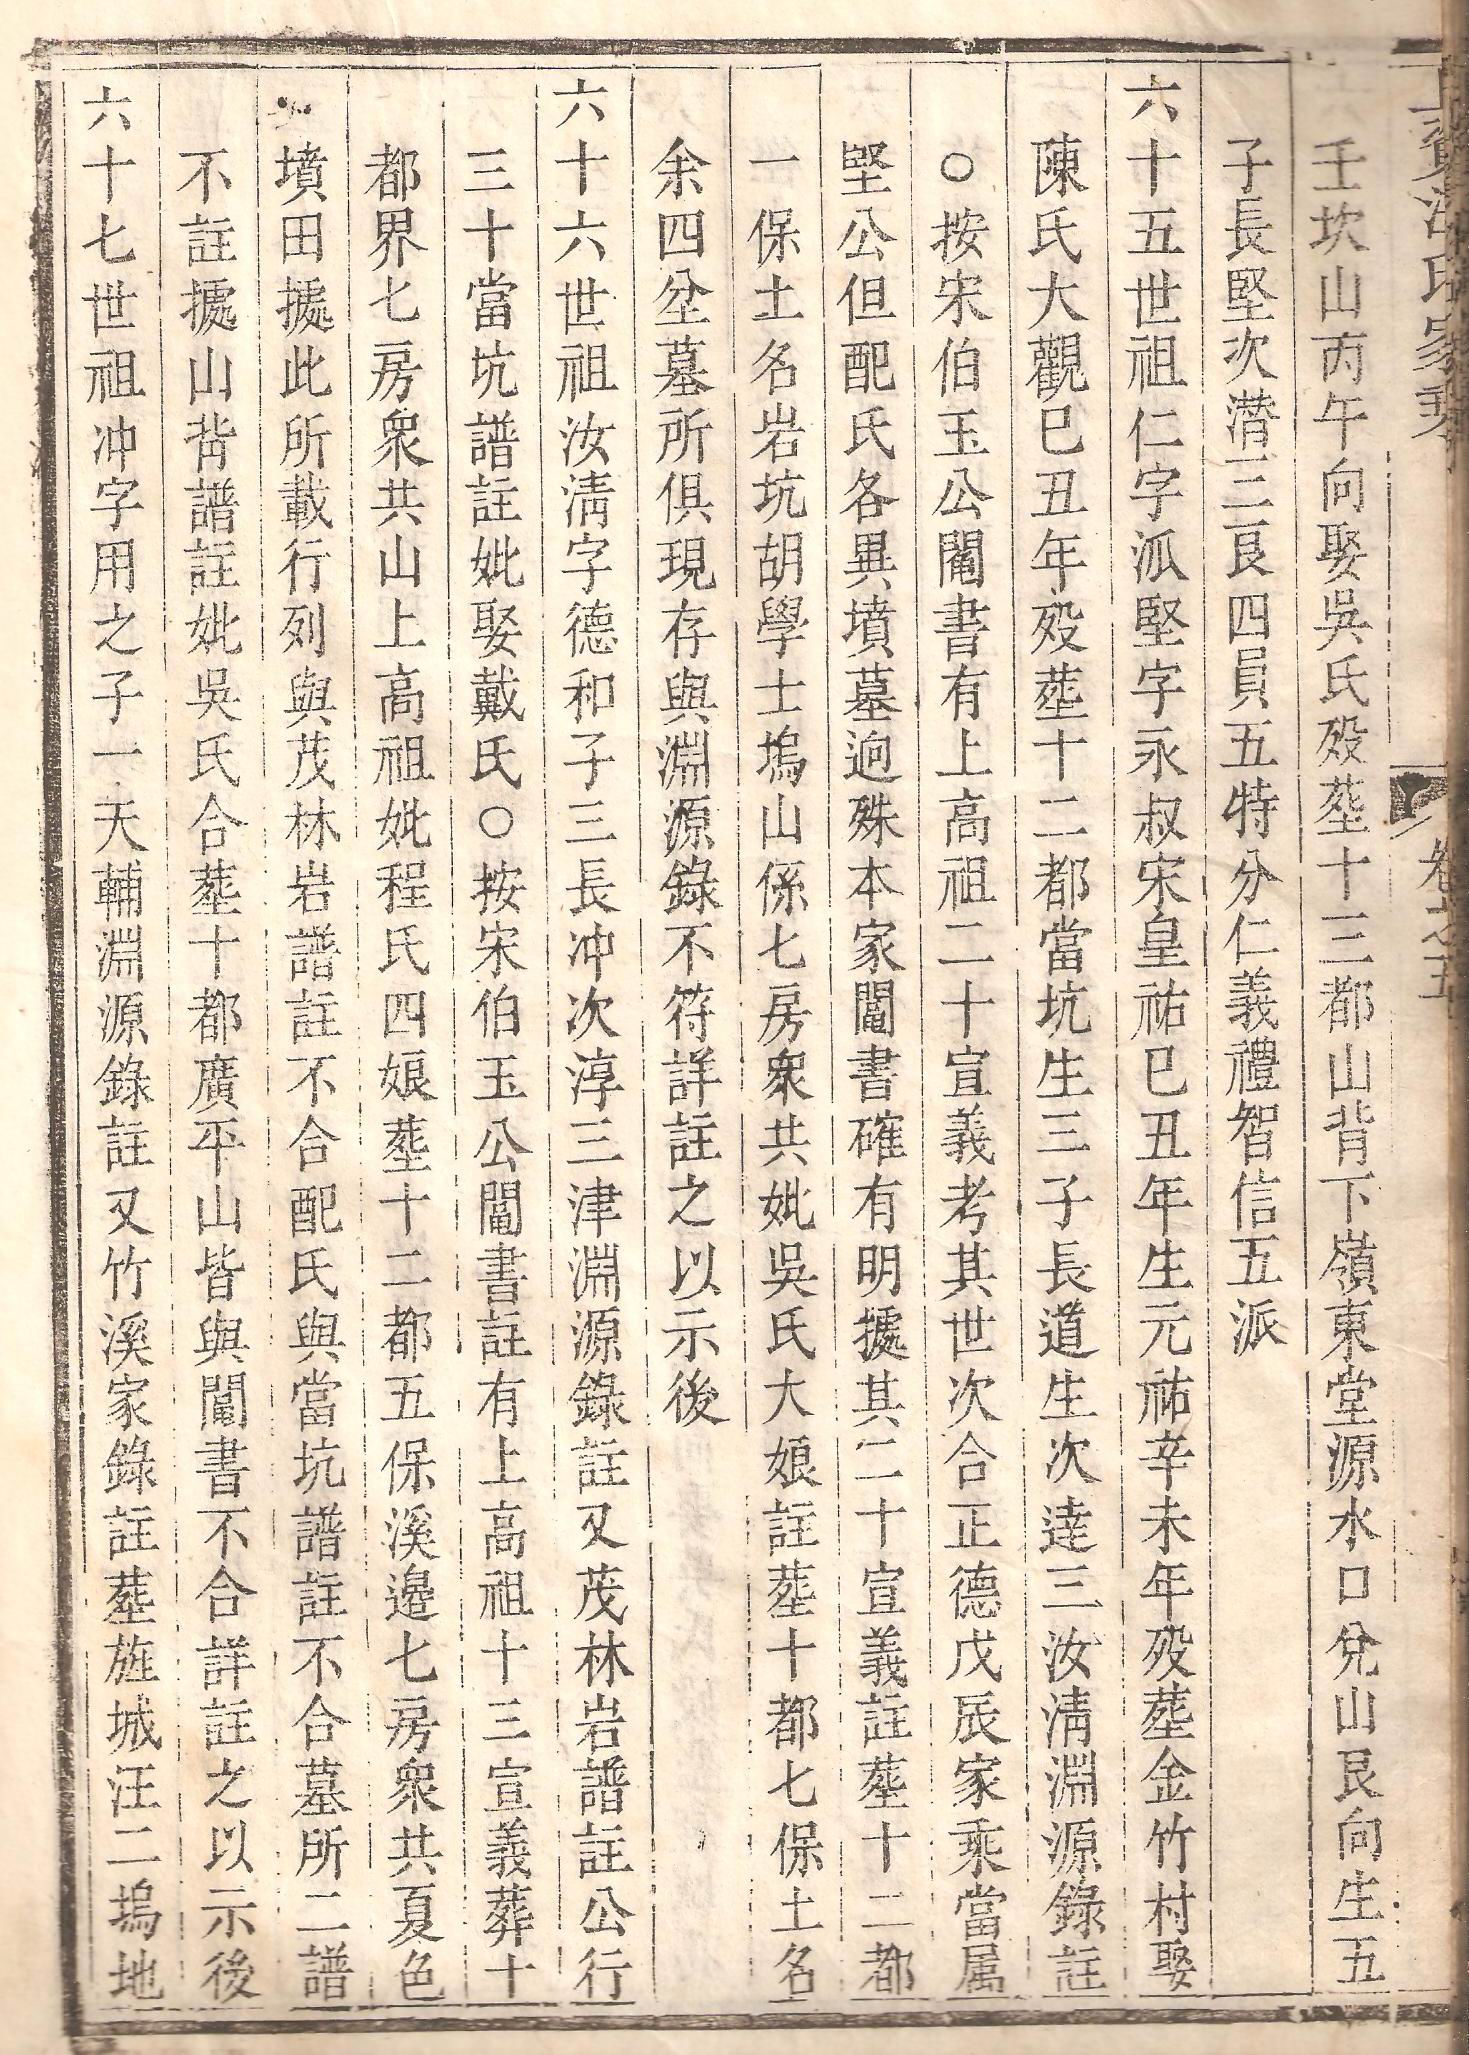 壬坎山丙午向娶吳氏殁塟十三都山背下嶺東堂源水口兌山艮向生五
子長堅次潛三艮四員五特分仁義禮智信五派
六十五世祖仁字派堅字永叔宋皇祐巳丑年生元祐辛未年殁塟金竹村娶
陳氏大觀巳丑年殁塟十二都當坑生三子長道生次達三汝清淵源錄註
○按宋伯玉公鬮書有上高祖二十宣義考其世次合正德戊辰家乘當属
堅公但配氏各異墳墓逈殊本家鬮書確有明㨿其二十宣義註塟十二都
一保土名岩坑胡學士塢山係七房衆共妣吳氏大娘註塟十都七保土名
余四坌墓所俱現存與淵源錄不符詳註之以示後
六十六世祖汝清字德和子三長冲次淳三津淵源錄註又茂林岩譜註公行
三十當坑譜註妣娶戴氏○按宋伯玉公鬮書註有上高祖十三宣義葬十
都界七房衆共山上高祖妣程氏四娘塟十二都五保溪邉七房衆共夏色
墳田㨿此所載行列與茂林岩譜註不合配氏與當坑譜註不合墓所二譜
不註㨿山背譜註妣吳氏合塟十都廣平山皆與鬮書不合詳註之以示後
六十七世祖冲字用之子一天輔淵源錄註又竹溪家錄註塟旌城汪二塢地
卷之五